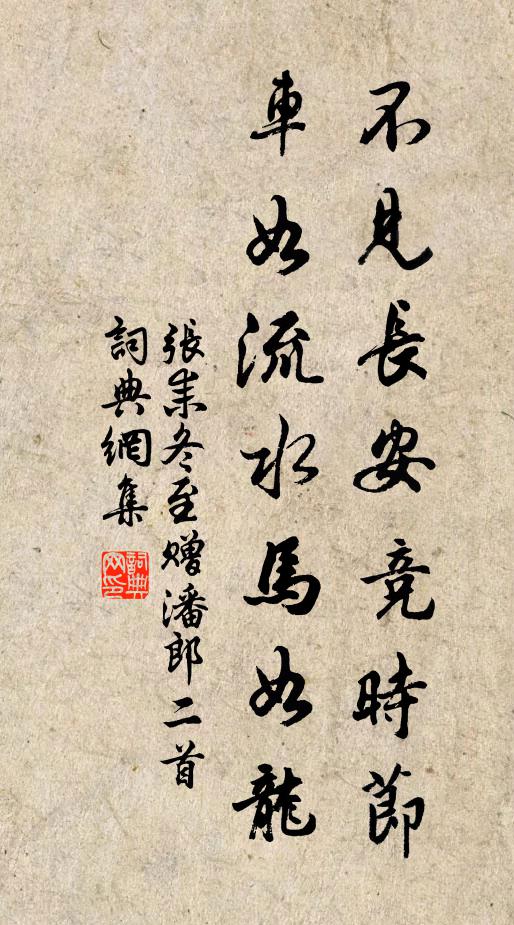 不見長安竞時節
車如流水馬如龍
張耒冬至贈潘郎二首
詞典網集
詞典网印